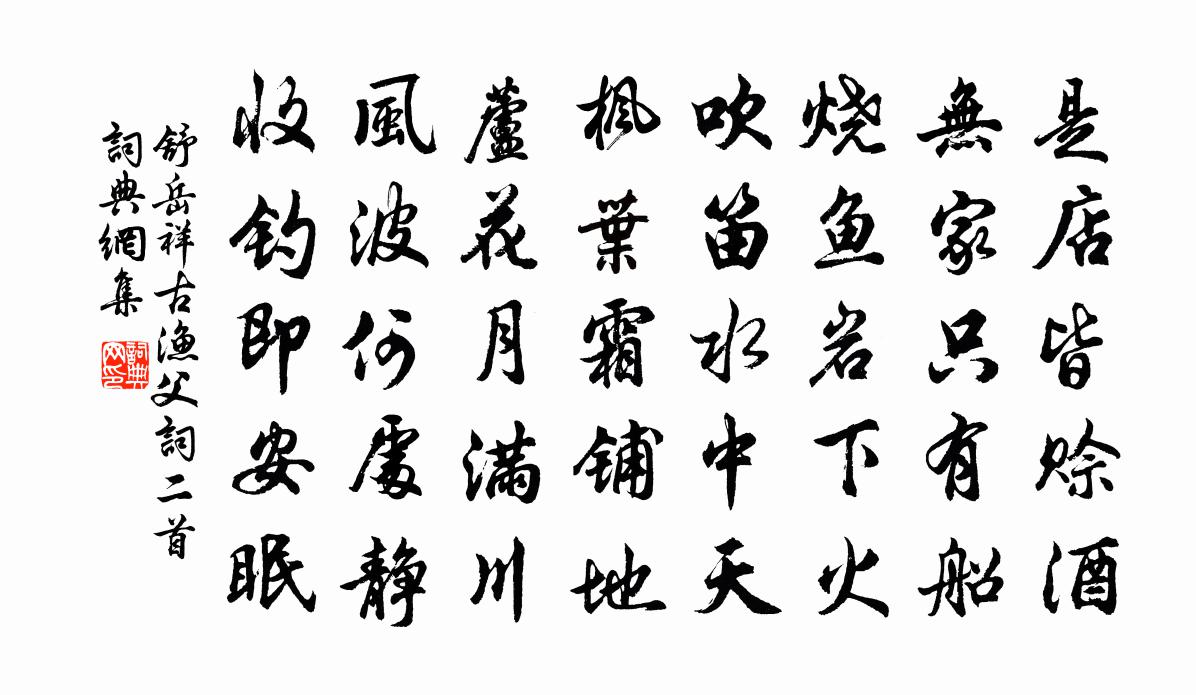 是店皆赊酒
無家只有船
烧鱼岩下火
吹笛水中天
枫葉霜铺地
蘆花月满川
風波何處静
收钓即安眠
舒岳祥古漁父詞二首
詞典網集
詞典
网印